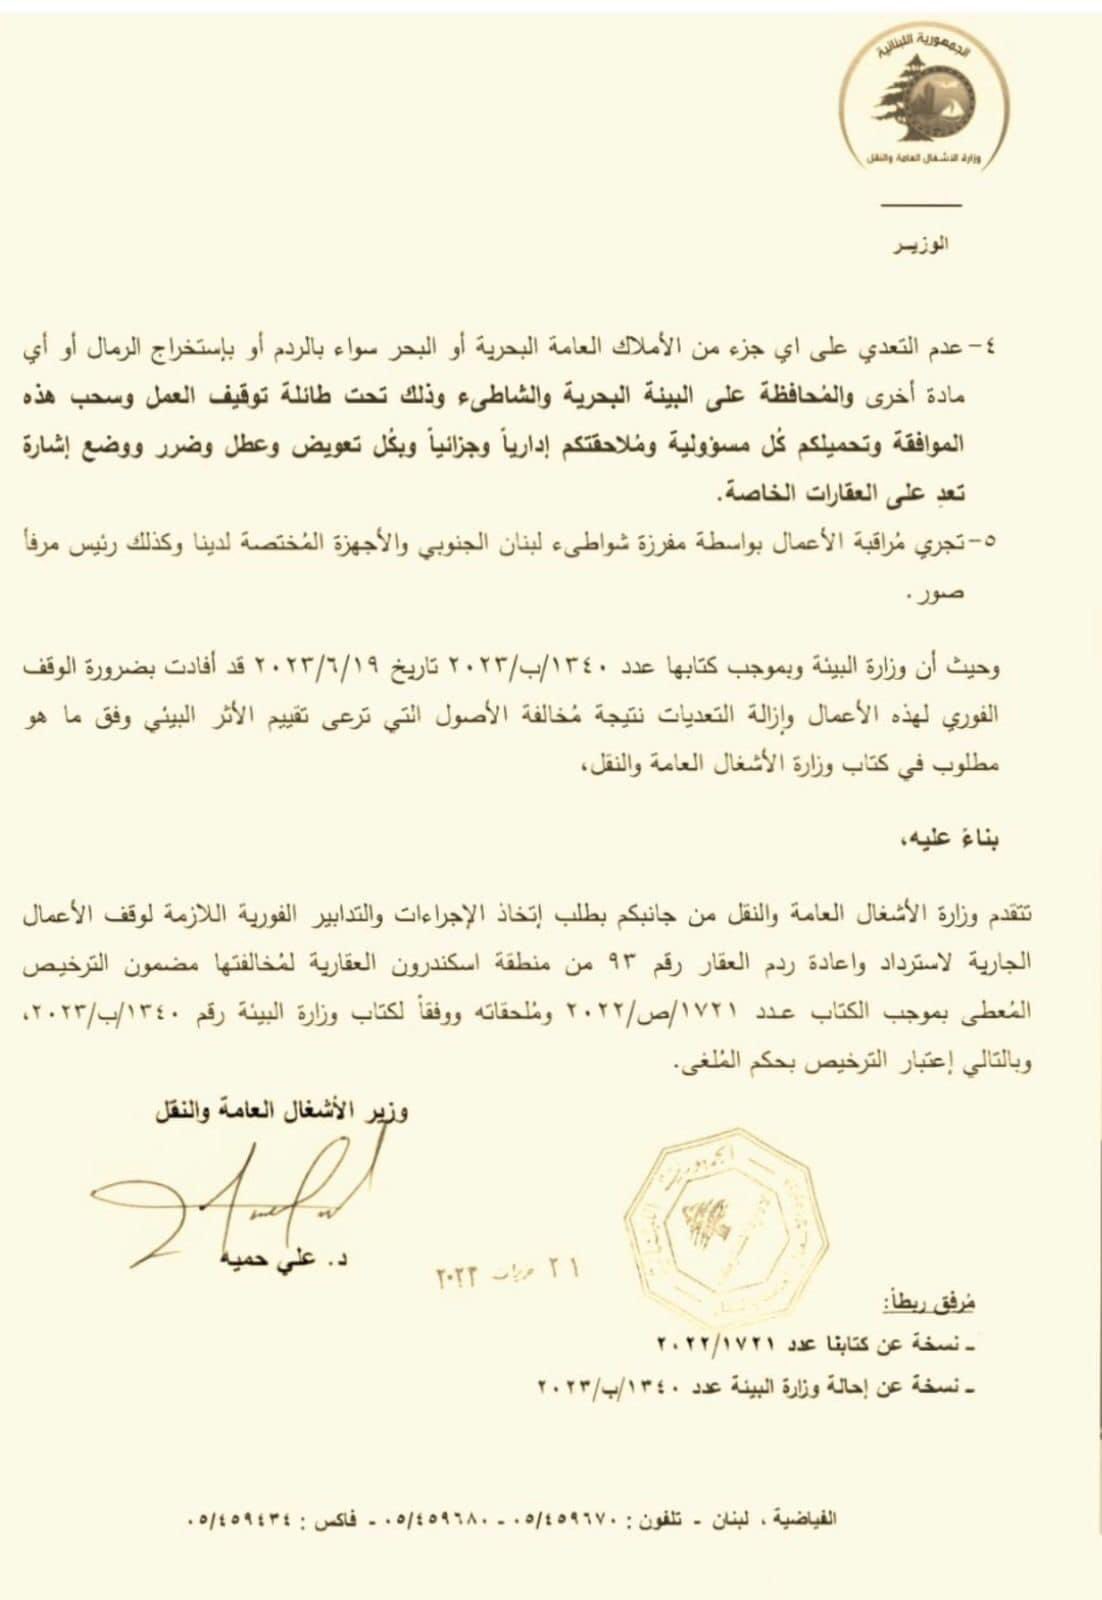 الجمهورية اللبنانية
وزارة الاشغال العامة والنقل
الوزيـر
٤- عدم التعدي على اي جزء من الأملاك العامة البحرية أو البحر سواء بالردم أو بإستخراج الرمال أو أي
مادة أخرى والمُحافظة على البيئة البحرية والشاطىء وذلك تحت طائلة توقيف العمل وسحب هذه
الموافقة وتحميلكم كُل مسؤولية ومُلاحقتكم إدارياً وجزائياً وبكُل تعويض وعطل وضرر ووضع إشارة
تعدِ على العقارات الخاصة.
٥- تجري مُراقبة الأعمال بواسطة مفرزة شواطىء لبنان الجنوبي والأجهزة المُختصة لدينا وكذلك رئيس مرفأ
صور .
وحيث أن وزارة البيئة وبموجب كتابها عدد ١٣٤٠/ب/٢٠٢٣ تاريخ ٢٠٢٣/٦/١٩ قد أفادت بضرورة الوقف
الفوري لهذه الأعمال وإزالة التعديات نتيجة مُخالفة الأصول التي ترعى تقييم الأثر البيئي وفق ما هو
مطلوب في كتاب وزارة الأشغال العامة والنقل،
بناءً عليه،
تتقدم وزارة الأشغال العامة والنقل من جانبكم بطلب إتخاذ الإجراءات والتدابير الفورية اللازمة لوقف الأعمال
الجارية لاسترداد واعادة ردم العقار رقم ٩٣ من منطقة اسكندرون العقارية لمُخالفتها مضمون الترخيص
المُعطى بموجب الكتاب عـدد ١٧٢١/ص/٢٠٢٢ ومُلحقاته ووفقاً لكتاب وزارة البيئة رقم ١٣٤٠/ب/٢٠٢٣،
وبالتالي إعتبار الترخيص بحكم المُلغى.
وزير الأشغال العامة والنقل
د. علي حميه
٢١ حزيران ٢٠٢٣
مُرفق ربطاً:
ـ نسخة عن كتابنا عدد ٢٠٢٢/١٧٢١
ـ نسخة عن إحالة وزارة البيئة عدد ١٣٤٠/ب/٢٠٢٣
الفياضية ، لبنان - تلفون : ٠٥/٤٥٩٦٧٠ - ٠٥/٤٥٩٦٨٠ - فاكس : ٠٥/٤٥٩٤٣٤